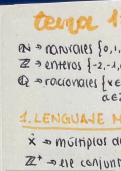 tema 1
ℕ → naturales {0,1,
ℤ → enteros {-2,-1,
ℚ → racionales {x ∈
a ∈
1. LENGUAJE
ẋ → múltiplos d
ℤ⁺ → ele conjun